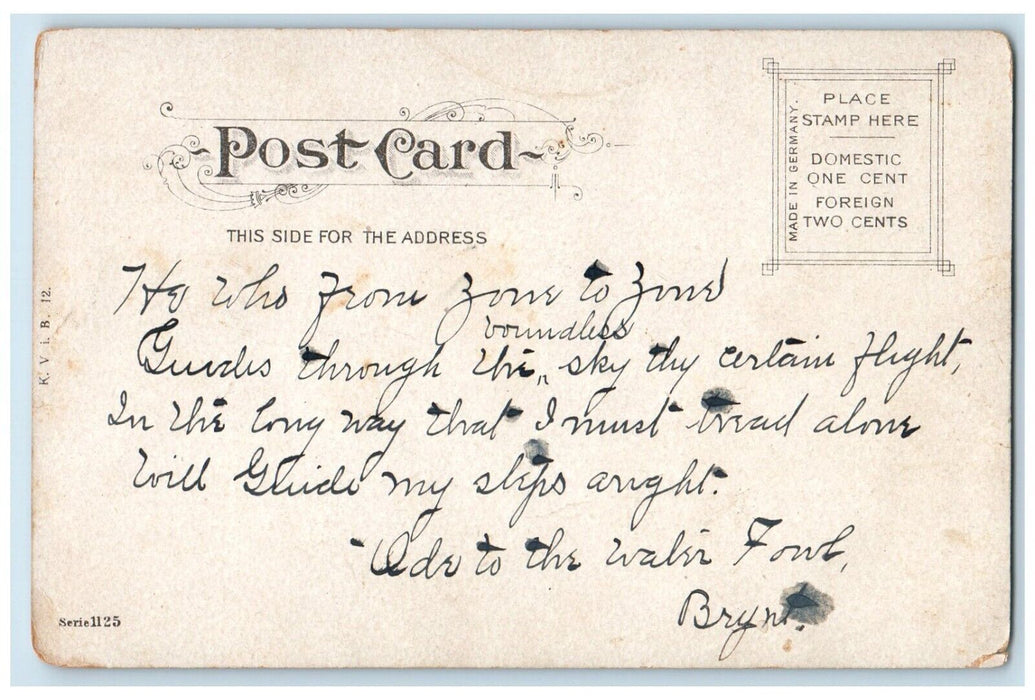 Post Card
THIS SIDE FOR THE ADDRESS
PLACE
STAMP HERE
DOMESTIC
ONE CENT
FOREIGN
TWO CENTS
MADE IN GERMANY.
K. V. i. B. 12.
He who from zone to zone
boundless
Guides through the " sky thy certain flight,
In the long way that I must tread alone
Will Guide my steps aright.
Ode to the water Fowl,
Brynt.
Serie 1125